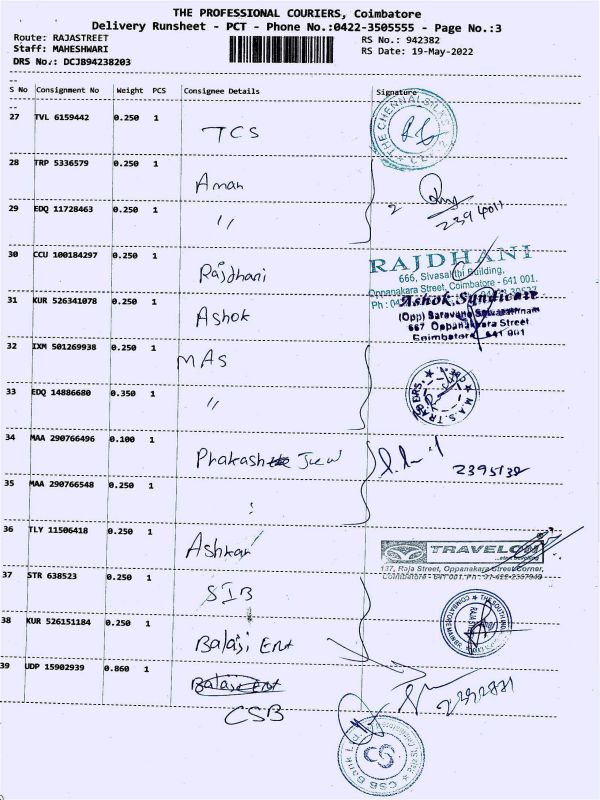 THE PROFESSIONAL COURIERS, Coimbatore
Delivery Runsheet - PCT - Phone No.:0422-3505555 - Page No.:3
Route: RAJASTREET
RS No.: 942382
Staff: MAHESHWARI
RS Date: 19-May-2022
DRS No.: DCJB94238203
S No Consignment No Weight PCS Consignee Details Signature
27 TVL 6159442 0.250 1 TCS
THE CHENNAI SILKS
28 TRP 5336579 0.250 1 Aman
29 EDQ 11728463 0.250 1 "
2
2394011
30 CCU 100184297 0.250 1 Rajdhani
RAJDHANI
666, Sivasakthi Building,
Oppanakara Street, Coimbatore - 641 001.
31 KUR 526341078 0.250 1 Ashok
Ashok Syndicate
(Opp) Saravana
667 Oppanakara Street
Coimbatore 641 001
32 IXM 501269938 0.250 1 MAS
33 EDQ 14886680 0.350 1 "
M.A.S. TRADERS
34 MAA 290766496 0.100 1 Phakash Jew
35 MAA 290766548 0.250 1 :
36 TLY 11506418 0.250 1 Ashkar
TRAVELOM
137, Raja Street, Oppanakara Street Corner,
Coimbatore - 641 001.
37 STR 638523 0.250 1 SIB
THE SOUTH
38 KUR 526151184 0.250 1 Balaji Ent
39 UDP 15902939 0.860 1 Balaji Ent
CSB
CSB Bank Ltd.
CSB